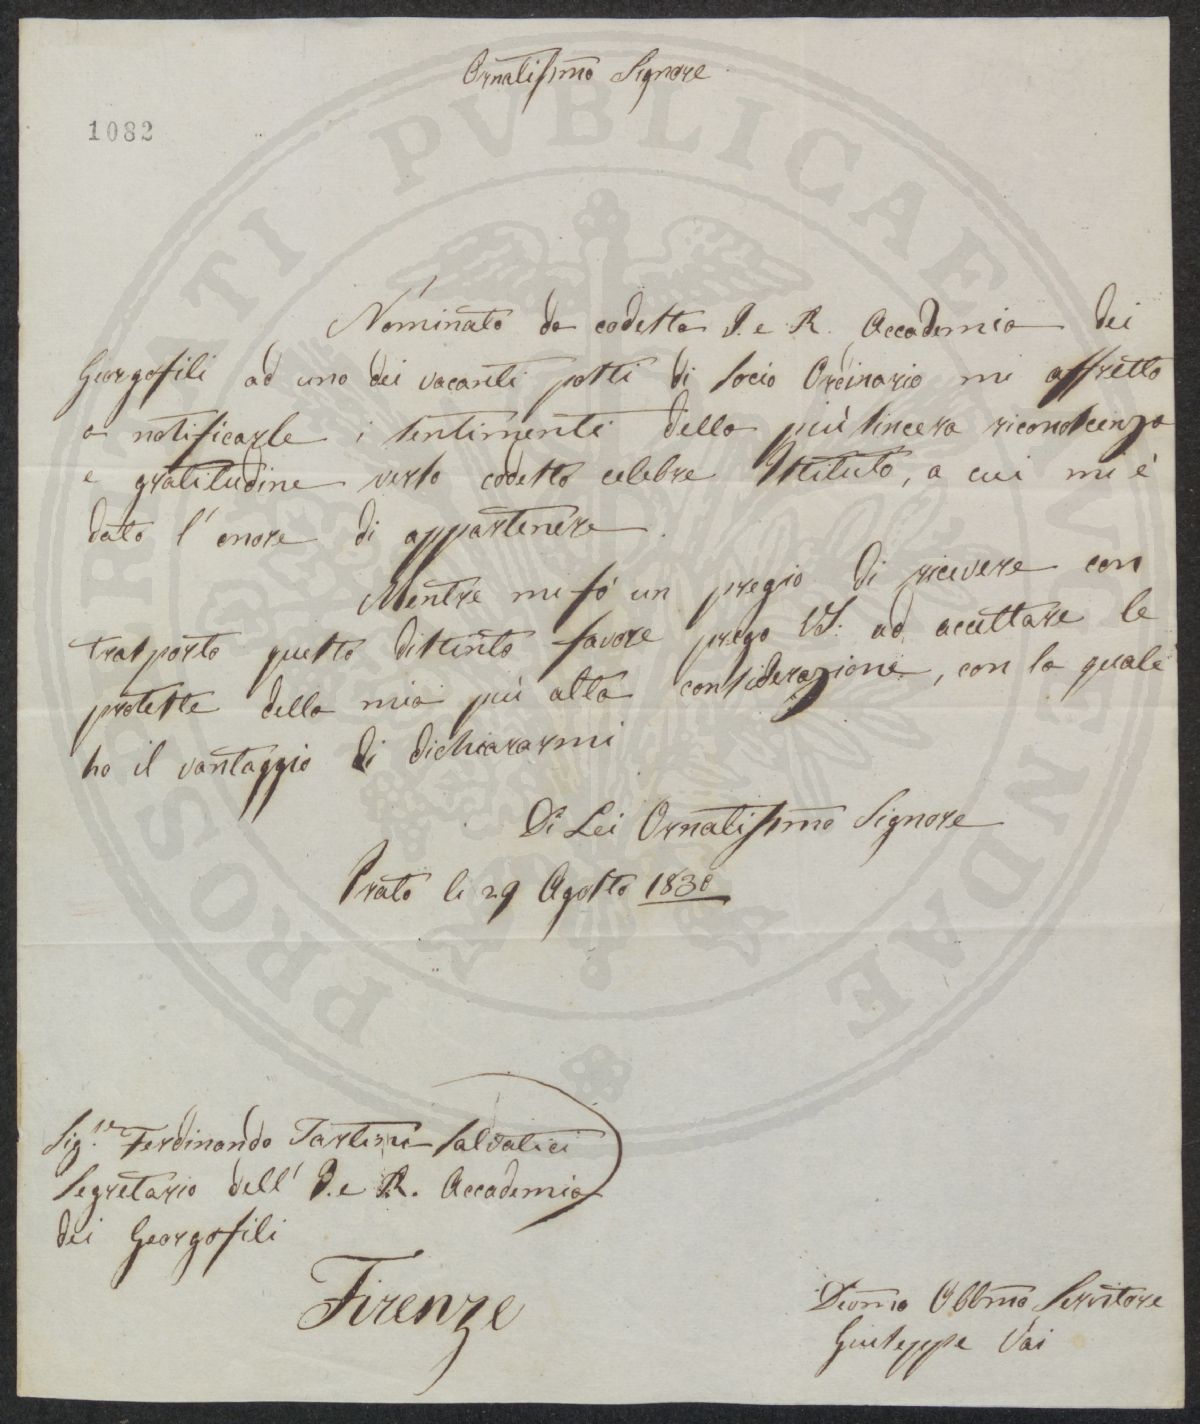 Ornatissmo Signore
1082
Nominato da codesta I. e R. Accademia dei
Georgofili ad uno dei vacanti posti di Socio Ordinario mi affretto
a notificarle i sentimenti della più sincera riconoscenza
e gratitudine verso codesto celebre Istituto, a cui mi è
dato l'onore di appartenere.
Mentre mi fò un pregio di ricevere con
trasporto questo distinto favore prego VS. ad accettare le
proteste della mia più alta considerazione, con la quale
ho il vantaggio di dichiararmi
Di Lei Ornatissmo Signore
Prato li 29 Agosto
Sig.re Ferdinando Tartini Salvatici
Segretario dell' I. e R. Accademia
dei Georgofili
Firenze
Devmo Obbmo Servitore
Giuseppe Vai
PROSPERITATI PVBLICAE AVGENDAE